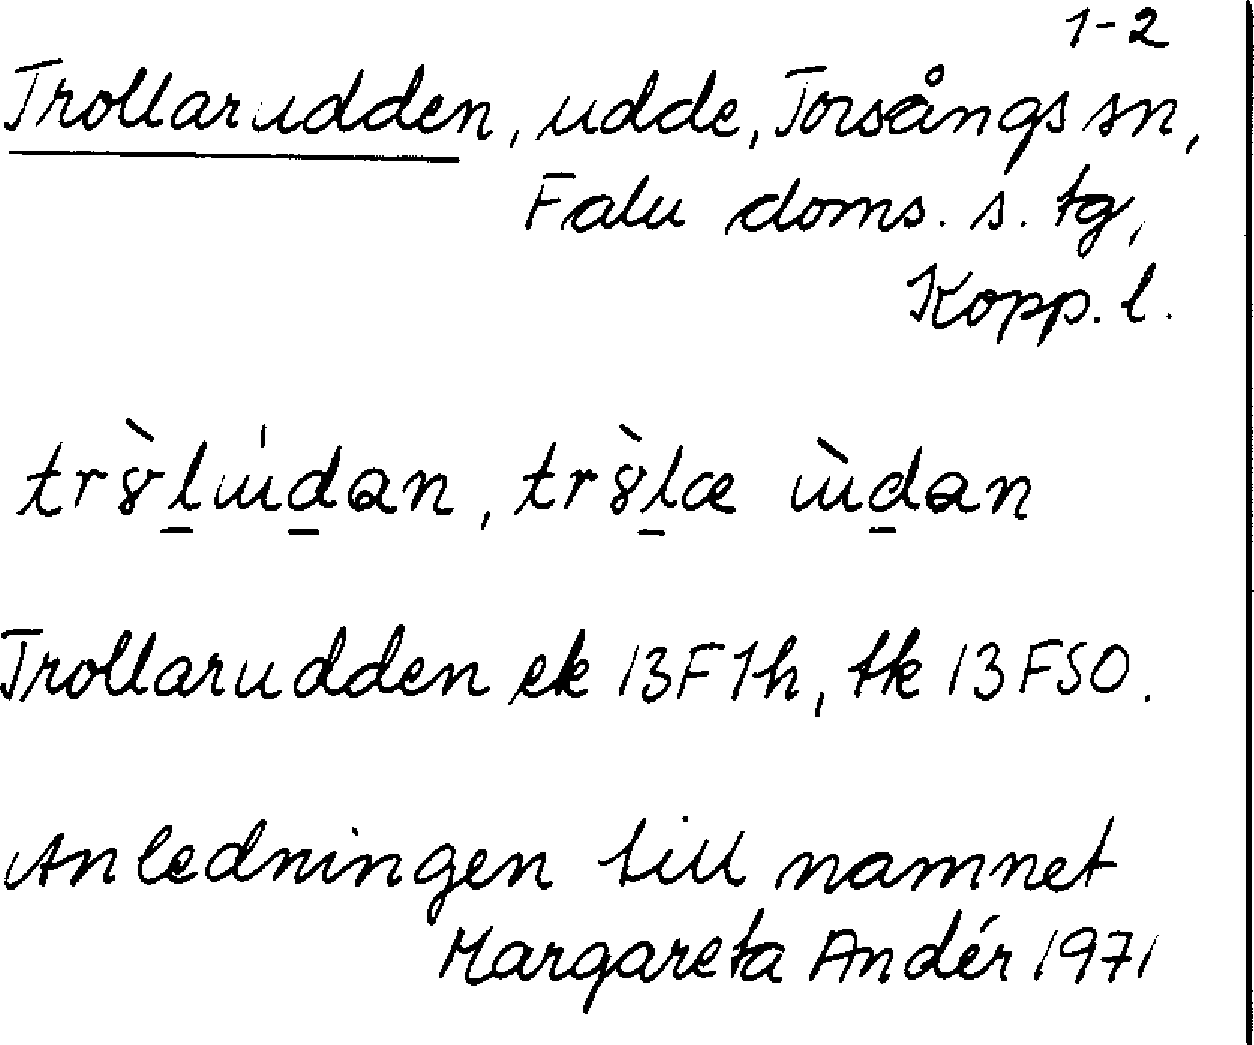 1-2
Trollarudden, udde, Torsångs sn,
Falu doms. s. tg,
Kopp. l.
Trollarudden ek 13F1h, tk 13FSO.
Anledningen till namnet
Margareta Andér 1971